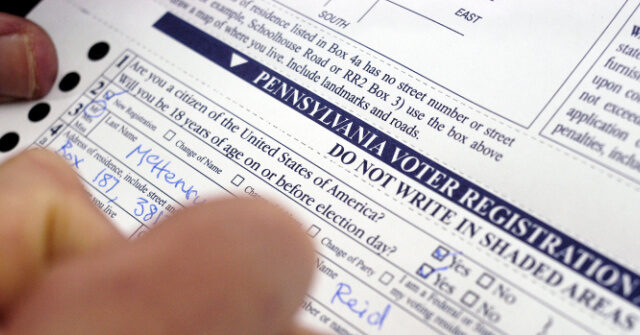 SOUTH
EAST
of residence listed in Box 4a has no street number or street
example, Schoolhouse Road or RR2 Box 3) use the box above
draw a map of where you live. Include landmarks and roads.
PENNSYLVANIA VOTER REGISTRATION
DO NOT WRITE IN SHADED AREAS
1 Are you a citizen of the United States of America? Yes No
Will you be 18 years of age on or before election day? Yes No
2 New Registration Change of Name Change of Party I am a Federal or
my voting resi
3 Last Name Name
McHenry Reid
4 Address of residence, include street
Box 187, 381
you live
upon co
not excee
application
furnishin
penalties, inclu